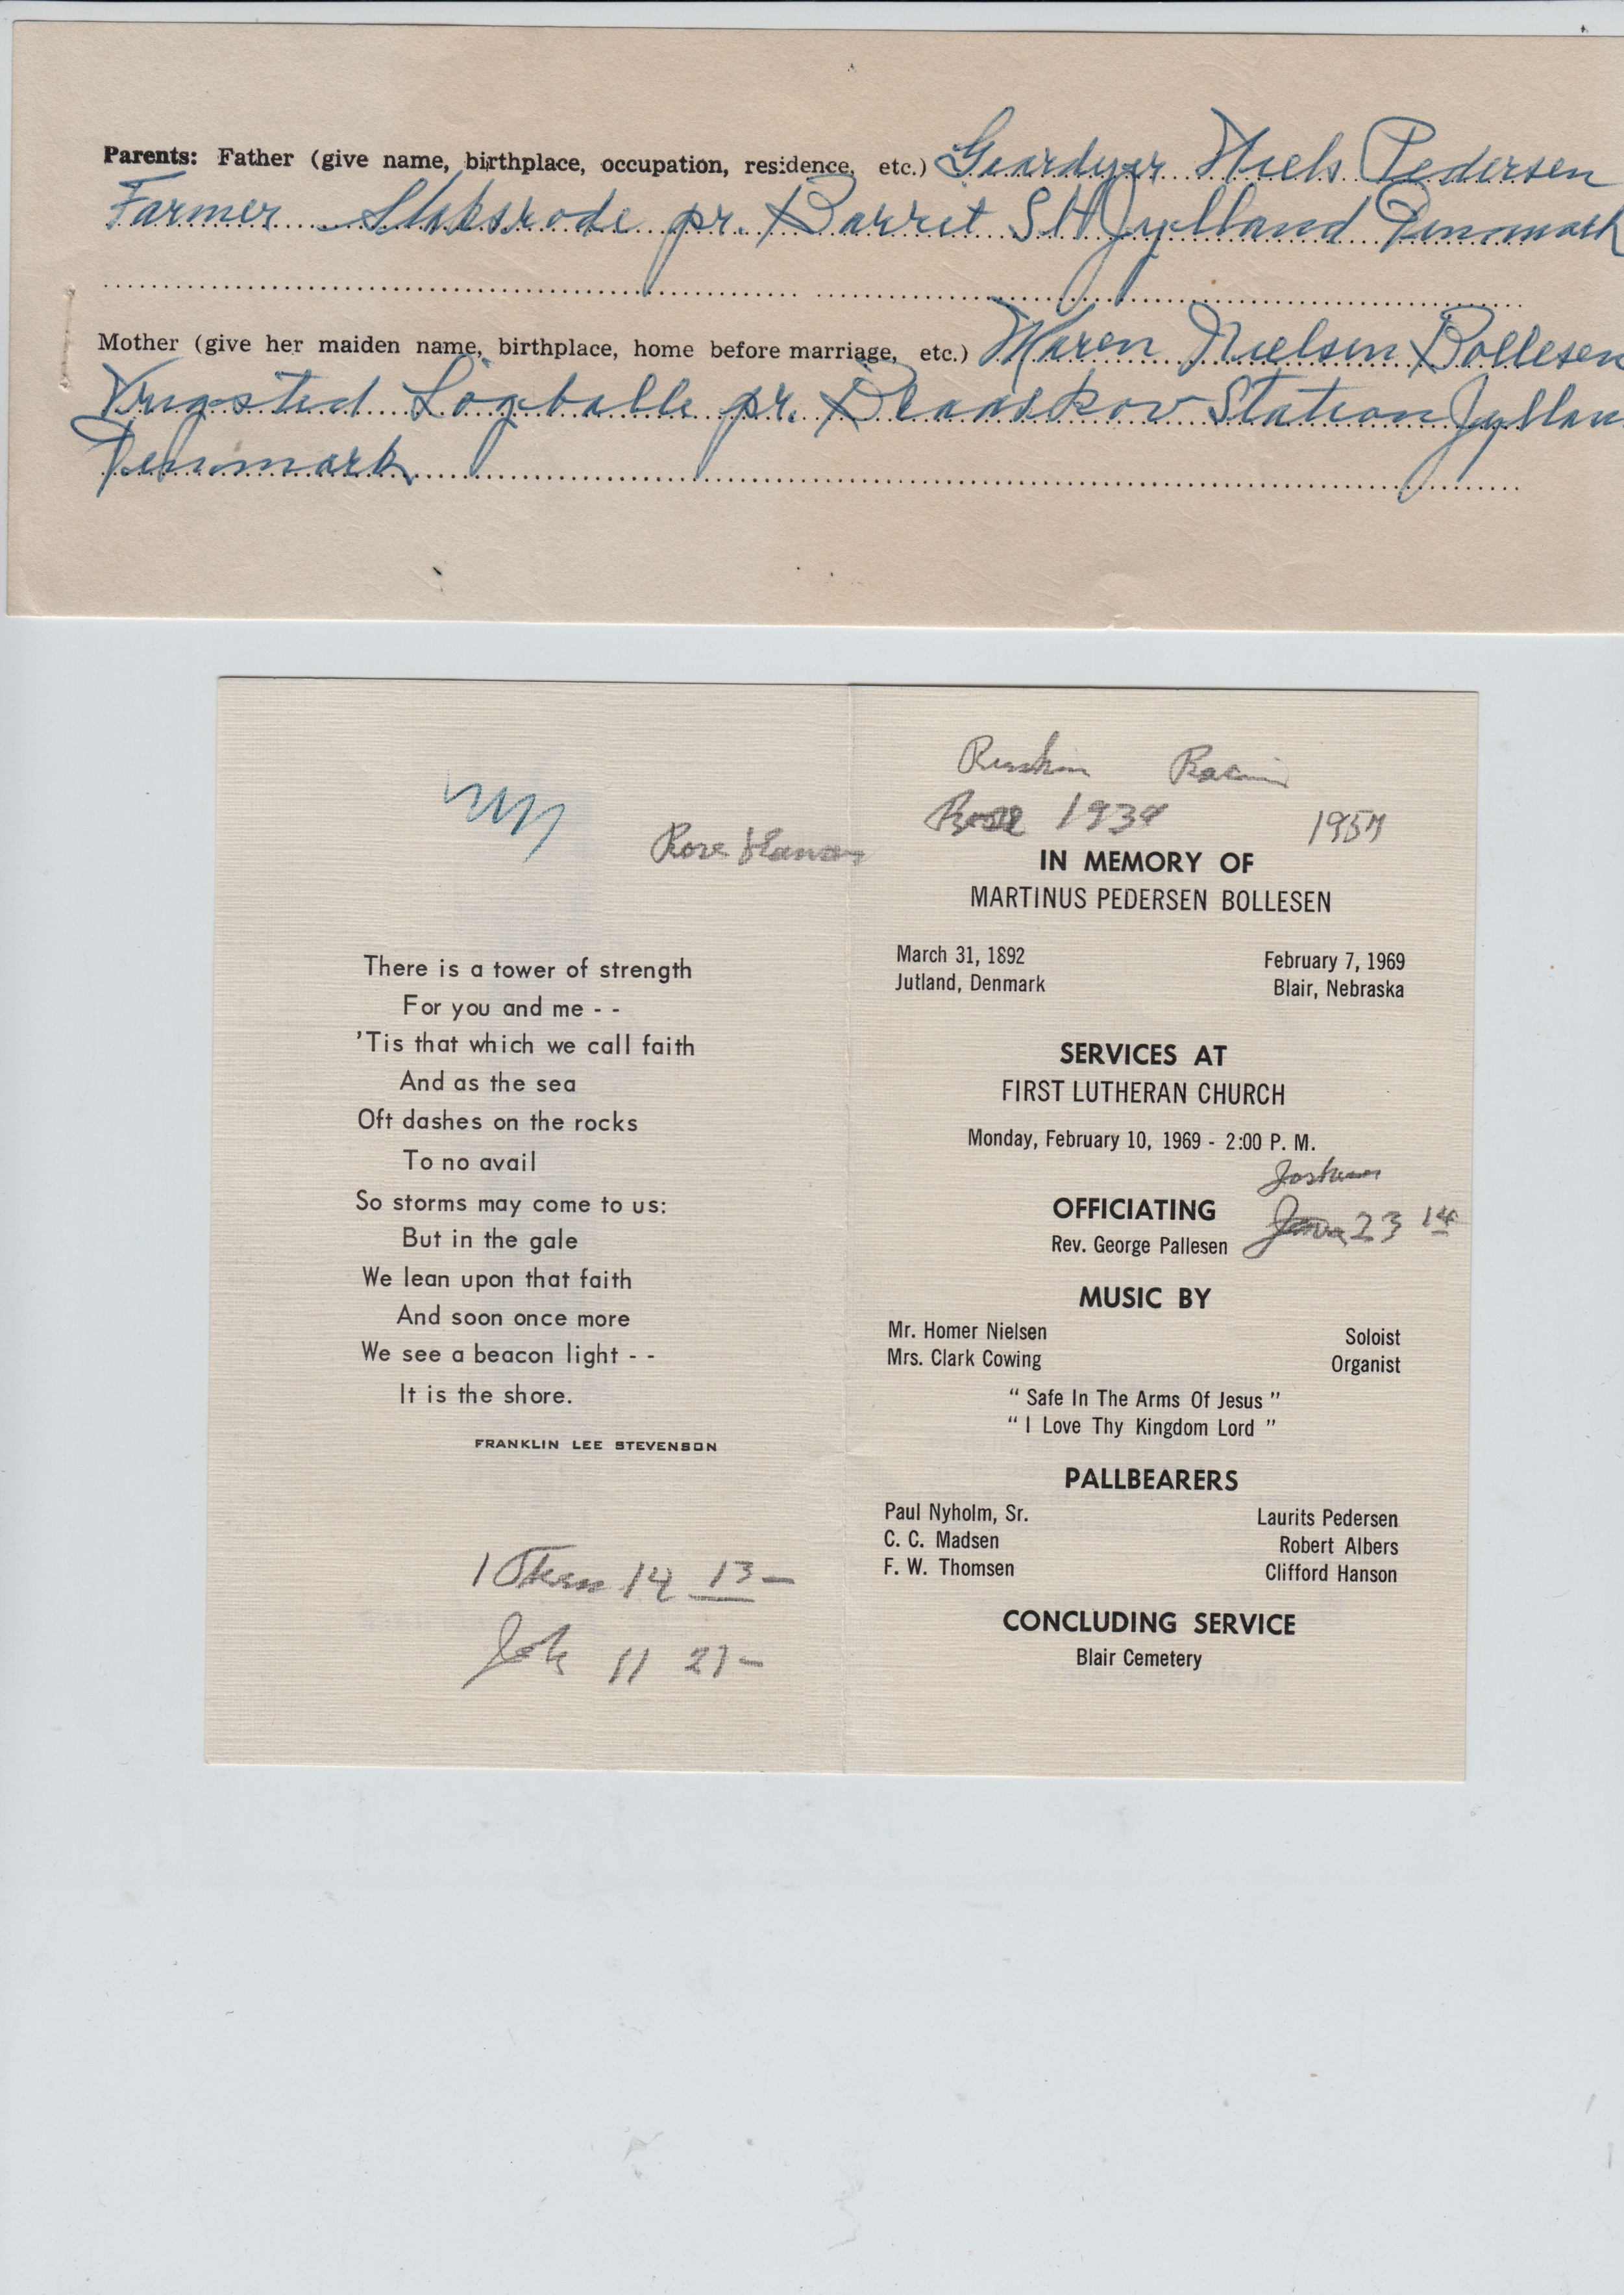 Parents: Father (give name, birthplace, occupation, residence, etc.) Niels Pedersen
Farmer pr. Barrit St Jylland Denmark
Mother (give her maiden name, birthplace, home before marriage, etc.) Maren Nielsen Bollesen
Vrigsted Lögballe pr. Station Jyllan
Denmark
Ruskin Racin
Rose 1934 1957
Rose
IN MEMORY OF
MARTINUS PEDERSEN BOLLESEN
March 31, 1892 February 7, 1969
Jutland, Denmark Blair, Nebraska
SERVICES AT
FIRST LUTHERAN CHURCH
Monday, February 10, 1969 - 2:00 P. M.
OFFICIATING
Rev. George Pallesen
23 14
MUSIC BY
Mr. Homer Nielsen Soloist
Mrs. Clark Cowing Organist
" Safe In The Arms Of Jesus "
" I Love Thy Kingdom Lord "
PALLBEARERS
Paul Nyholm, Sr. Laurits Pedersen
C. C. Madsen Robert Albers
F. W. Thomsen Clifford Hanson
CONCLUDING SERVICE
Blair Cemetery
There is a tower of strength
For you and me - -
'Tis that which we call faith
And as the sea
Oft dashes on the rocks
To no avail
So storms may come to us:
But in the gale
We lean upon that faith
And soon once more
We see a beacon light - -
It is the shore.
FRANKLIN LEE STEVENSON
1 Thess 14 13 -
Joh 11 21 -